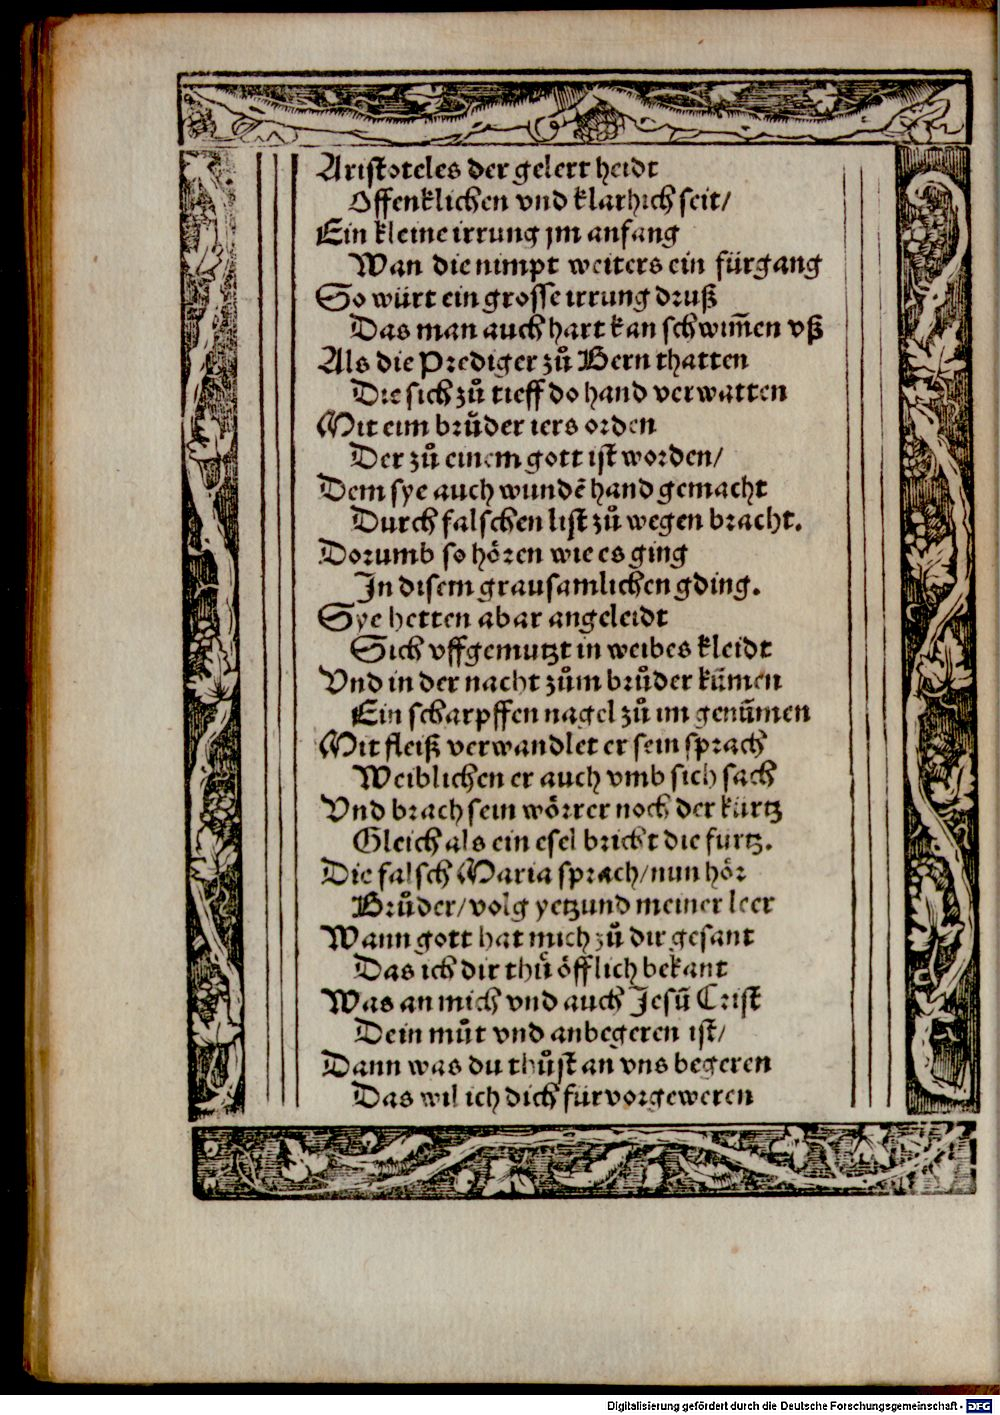 Aristoteles der gelert heidt
Offenklichen vnd klarlich seit/
Ein kleine irrung jm anfang
Wan die nimpt weiters ein fürgang
So würt ein grosse irrung druß
Das man auch hart kan schwim̄en vß
Als die Prediger zů Bern thatten
Die sich zů tieff do hand verwatten
Mit eim brůder iers orden
Der zů einem gott ist worden/
Dem sye auch wundē hand gemacht
Durch falschen list zů wegen bracht.
Dorumb so hören wie es ging
In disem grausamlichen gding.
Sye hetten abar angeleidt
Sich vffgemutzt in weibes kleidt
Vnd in der nacht zům brůder kūmen
Ein scharpffen nagel zů im genūmen
Mit fleiß verwandlet er sein sprach
Weiblichen er auch vmb sich sach
Vnd brach sein wörrer noch der kürtz
Gleich als ein esel bricht die fürtz.
Die falsch Maria sprach/nun hör
Brůder/volg yetzund meiner leer
Wann gott hat mich zů dir gesant
Das ich dir thů öfflich bekant
Was an mich vnd auch Jesū Crist
Dein můt vnd anbegeren ist/
Dann was du thůst an vns begeren
Das wil ich dich für vor geweren
Digitalisierung gefördert durch die Deutsche Forschungsgemeinschaft - DFG